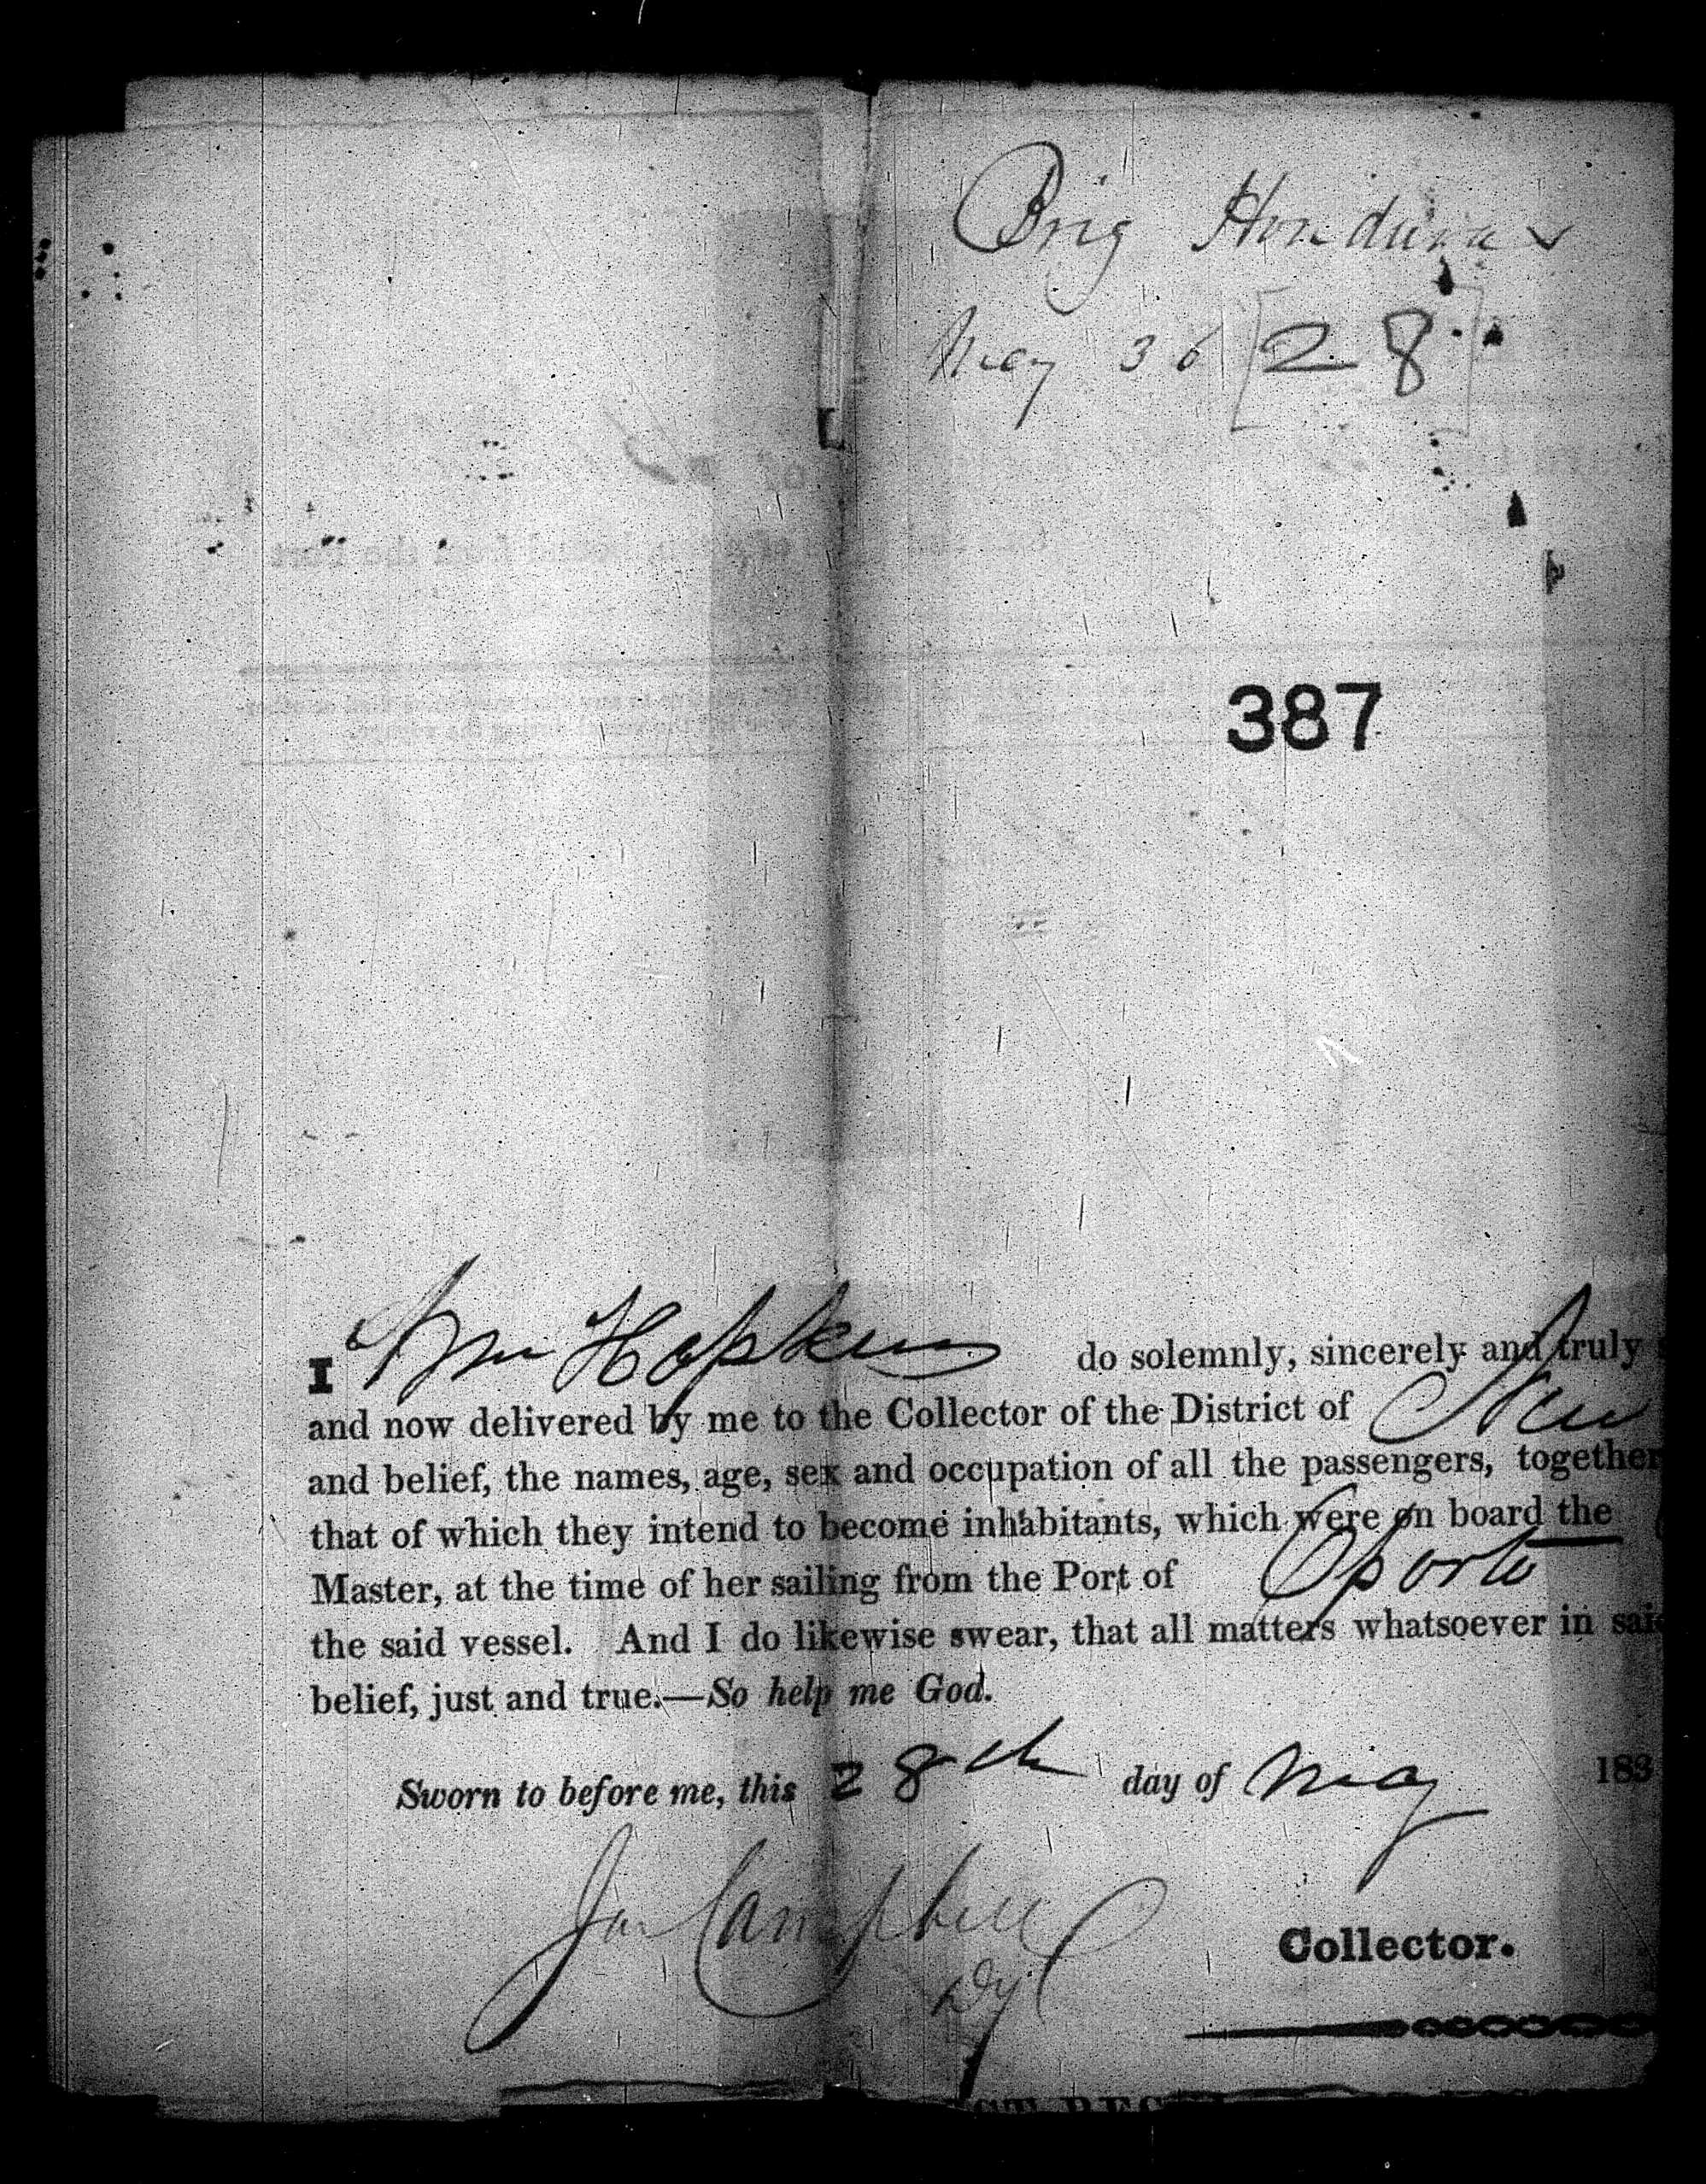 Brig Honduras
May 30 [28]
387
I Wm Hopkins do solemnly, sincerely and truly
and now delivered by me to the Collector of the District of New
and belief, the names, age, sex and occupation of all the passengers, together
that of which they intend to become inhabitants, which were on board the
Master, at the time of her sailing from the Port of Oporto
the said vessel. And I do likewise swear, that all matters whatsoever in said
belief, just and true.—So help me God.
Sworn to before me, this 28th day of May 183
Jas Campbell
Dy
Collector.